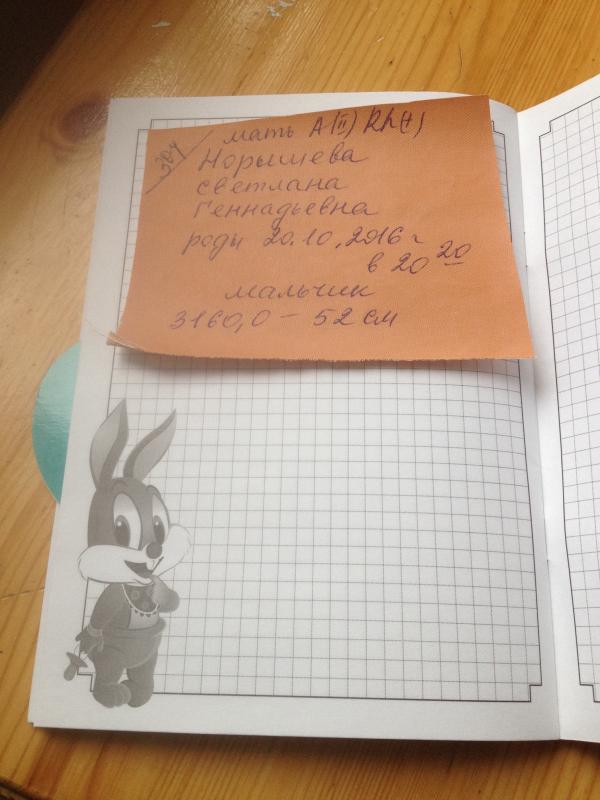 304
мать A(II) Rh(+)
Норышева
светлана
Геннадьевна
роды 20.10.2016 г
в 20 20
мальчик
3160,0 - 52 см